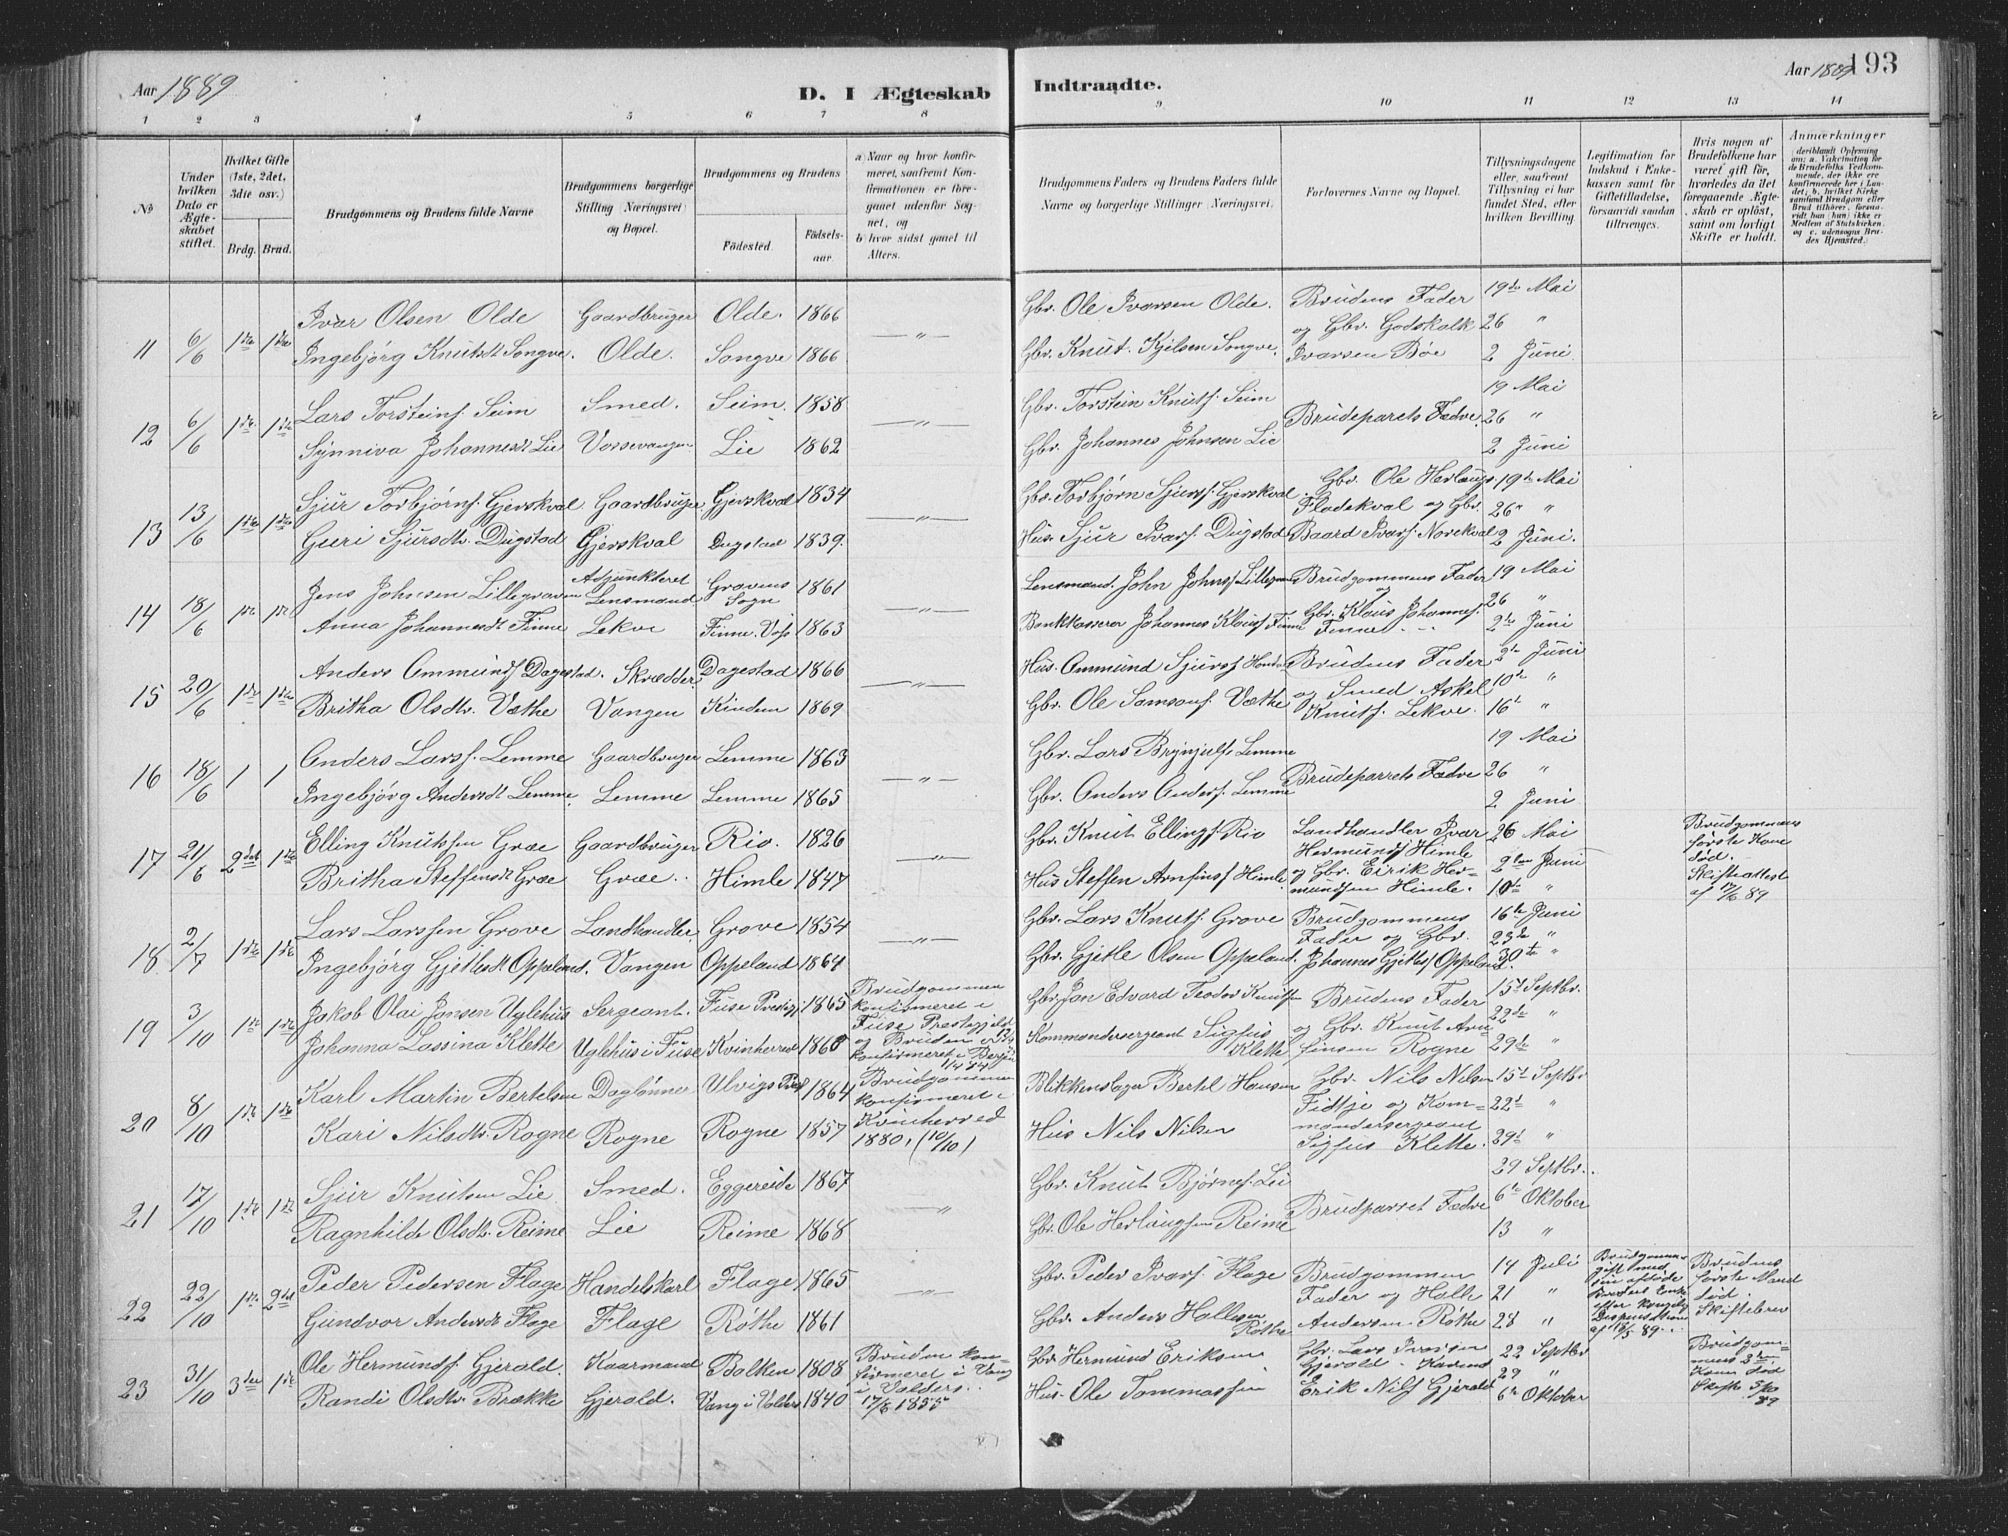 Aar 1889
D. I Ægteskab Indtraadte.
Aar 1889 193
1 2 3 4 5 6 7 8 9 10 11 12 13 14
№
Under hvilken Dato er Ægteskabet stiftet.
Hvilket Gifte (1ste, 2det, 3die osv.)
Brdg. Brud.
Brudgommens og Brudens fulde Navne
Brudgommens borgerlige Stilling (Næringsvei) og Bopæl.
Brudgommens og Brudens
Fødested. Fødselsaar.
a) Naar og hvor konfirmeret, saafremt Konfirmationen er foregaaet udenfor Sognet, og
b) hvor sidst gaaet til Alters.
Brudgommens Faders og Brudens Faders fulde Navne og borgerlige Stillinger (Næringsvei).
Forlovernes Navne og Bopæl.
Tillysningsdagene eller, saafremt Tillysning ei har fundet Sted, efter hvilken Bevilling.
Legitimation for Indskud i Enkekassen samt for Giftetilladelse, forsaavidt saadan tiltrænges.
Hvis nogen af Brudefolkene har været gift før, hvorledes da det foregaaende Ægteskab er opløst, samt om lovligt Skifte er holdt.
Anmærkninger
11 6/6 1ste 1ste Ivar Olsen Olde Gaardbruger Olde. 1866 — " — Gbr. Ole Ivarsen Olde. Brudens Fader 19de Mai
Ingebjørg Knutsdt Songve. Olde. Songve 1866 Gbr. Knut Kjelsen Songve. og Gbr. Godskalk Ivarsen Bøe 26 " 2 Juni
12 6/6 1ste 1ste Lars Torsteins. Seim Smed. Seim. 1858 — " — Gbr. Torstein Knuts. Seim Brudeparets Fædre. 19 Mai 26 "
Synniva Johannesdt Lie Vossevangen Lie 1862 Gbr. Johannes Johnsen Lie 2 Juni
13 13/6 1ste 1ste Sjur Torbjørns. Gjerskval. Gaardbruger Gjerskval 1834 — " — Gbr. Torbjørn Sjurs. Gjerskval Gbr. Ole Herlaugs. Fladekval og Gbr. 19de Mai 26 "
Guri Sjursdtr. Dugstad Gjerskval Dugstad 1839. Hus. Sjur Ivars. Dugstad Baard Ivars. Norekval 2 Juni.
14 18/6 1ste 1ste Jens Johnsen Lillegraven Adjunkteret Lensmand Gravens Sogn 1861 — " — Lensmand John Johns. Lillegraven Brudgommens Fader 19 Mai 26 "
Anna Johannesdt Finne Lekve Finne. Voss 1863 Bankkasserer Johannes Klaus. Finne Gbr. Klaus Johannes. Finne 2de Juni
15 20/6 1ste 1ste Anders Ommunds. Dagestad. Skrædder. Dagestad 1866 — " — Hus. Ommund Sjurs. Brudens Fader 2de Juni
Britha Olsdtr. Væthe Vangen Kindem 1869 Gbr. Ole Samsons. Væthe og Smed Askel Knuts. Lekve. 10de " 16de "
16 18/6 1 1 Anders Larss. Lemme Gaardbruger Lemme 1863 — " — Gbr. Lars Brynjulfs. Lemme Brudeparrets Fædre 19 Mai 26 "
Ingebjørg Andersdt Lemme. Lemme Lemme 1865 Gbr. Anders Anders. Lemme 2 Juni
17 21/6 2det 1ste Elling Knutssen Græe Gaardbruger Rio. 1826 — " — Gbr. Knut Ellings. Rio Landhandler Ivar Hermunds. Himle 26 Mai 2den Juni Brudgommens første Kone død.
Britha Steffensdt Græe Græe. Himle 1847 Hus Steffen Arnfins. Himle og Gbr. Eirik Hermundsen Himle. 10de " Skifteattest af 17/6 89
18 2/7 1ste 1ste Lars Larssen Grove Landhandler. Grove 1854 — " — Gbr. Lars Knuts. Grove Brudgommens Fader og Gbr. 16de Juni 23de "
Ingebjørg Gjetlesdt Oppeland. Vangen Oppeland 1864 Gbr. Gjetle Olsen Oppeland. Johannes Gjetles. Oppeland. 30te "
19 3/10 1ste 1ste Jakob Olai Jansen Uglehus Sergeant. Fuse Prestegj. 1865 Brudgommen konfirmeret i Fuse Prestegjeld Gbr. Jan Edvard Teodor Knutsen Brudens Fader 15de Septbr. 22de "
Johanna Lassina Klette Uglehus i Fuse Kvinherred og Bruden konfirmeret i Bergen Kommandersergeant Sigfus Klette og Gbr. Knut Arnfinsen Rogne 29de "
20 8/10 1ste 1ste Karl Martin Bertelsen Dagløner Ulvigs Prest 1864 Brudgommen konfirmeret i Blikkenslager Bertel Hansen Gbr. Nils Nilsen Fidtje og Kom= 15de Septbr 22de "
Kari Nilsdtr. Rogne Rogne Rogne 1857 Kvinherred 1880, (10/10) Hus Nils Nilsen mandersergeant Sigfus Klette. 29de "
21 17/10 1ste 1ste Sjur Knutsen Lie Smed. Eggereide 1867 " Gbr. Knut Bjørns. Lie Brudparret Fædre 29 Septbr. 6te Oktober
Ragnhilde Olsdtr. Reime Lie Reime 1868 Gbr. Ole Herlaugsen Reime 13 "
22 22/10 1ste 2det Peder Pedersen Flage Handelskarl Flage 1865 — " — Gbr. Peder Ivars. Flage Brudgommen Fader og Halle 14 Juli 21 " Brudgommen gift med sin afdøde Broders Enke Brudens første Mand død.
Gundvor Andersdt Flage Flage Røthe 1861 Gbr. Anders Hallesen Røthe Andersen Røthe 28 " efter kongelig Dispensation af 18/5 89. Skiftebrev
23 31/10 3die 1ste Ole Hermunds. Gjerald. Kaarmand Bolken 1808 Bruden konfirmeret i Vang Gbr. Hermund Eriksen Gbr. Lars Ivarsen Gjerald. Kaarmd 22 Septbr 29 " Brudgommens 2den Kone død
Randi Olsdtr. Brække Gjerald. Vang i Valders 1840 i Valders. 17/6 1855 Hus. Ole Tommassen Erik Nils. Gjerald 6te Oktober Skifte 5/10 89